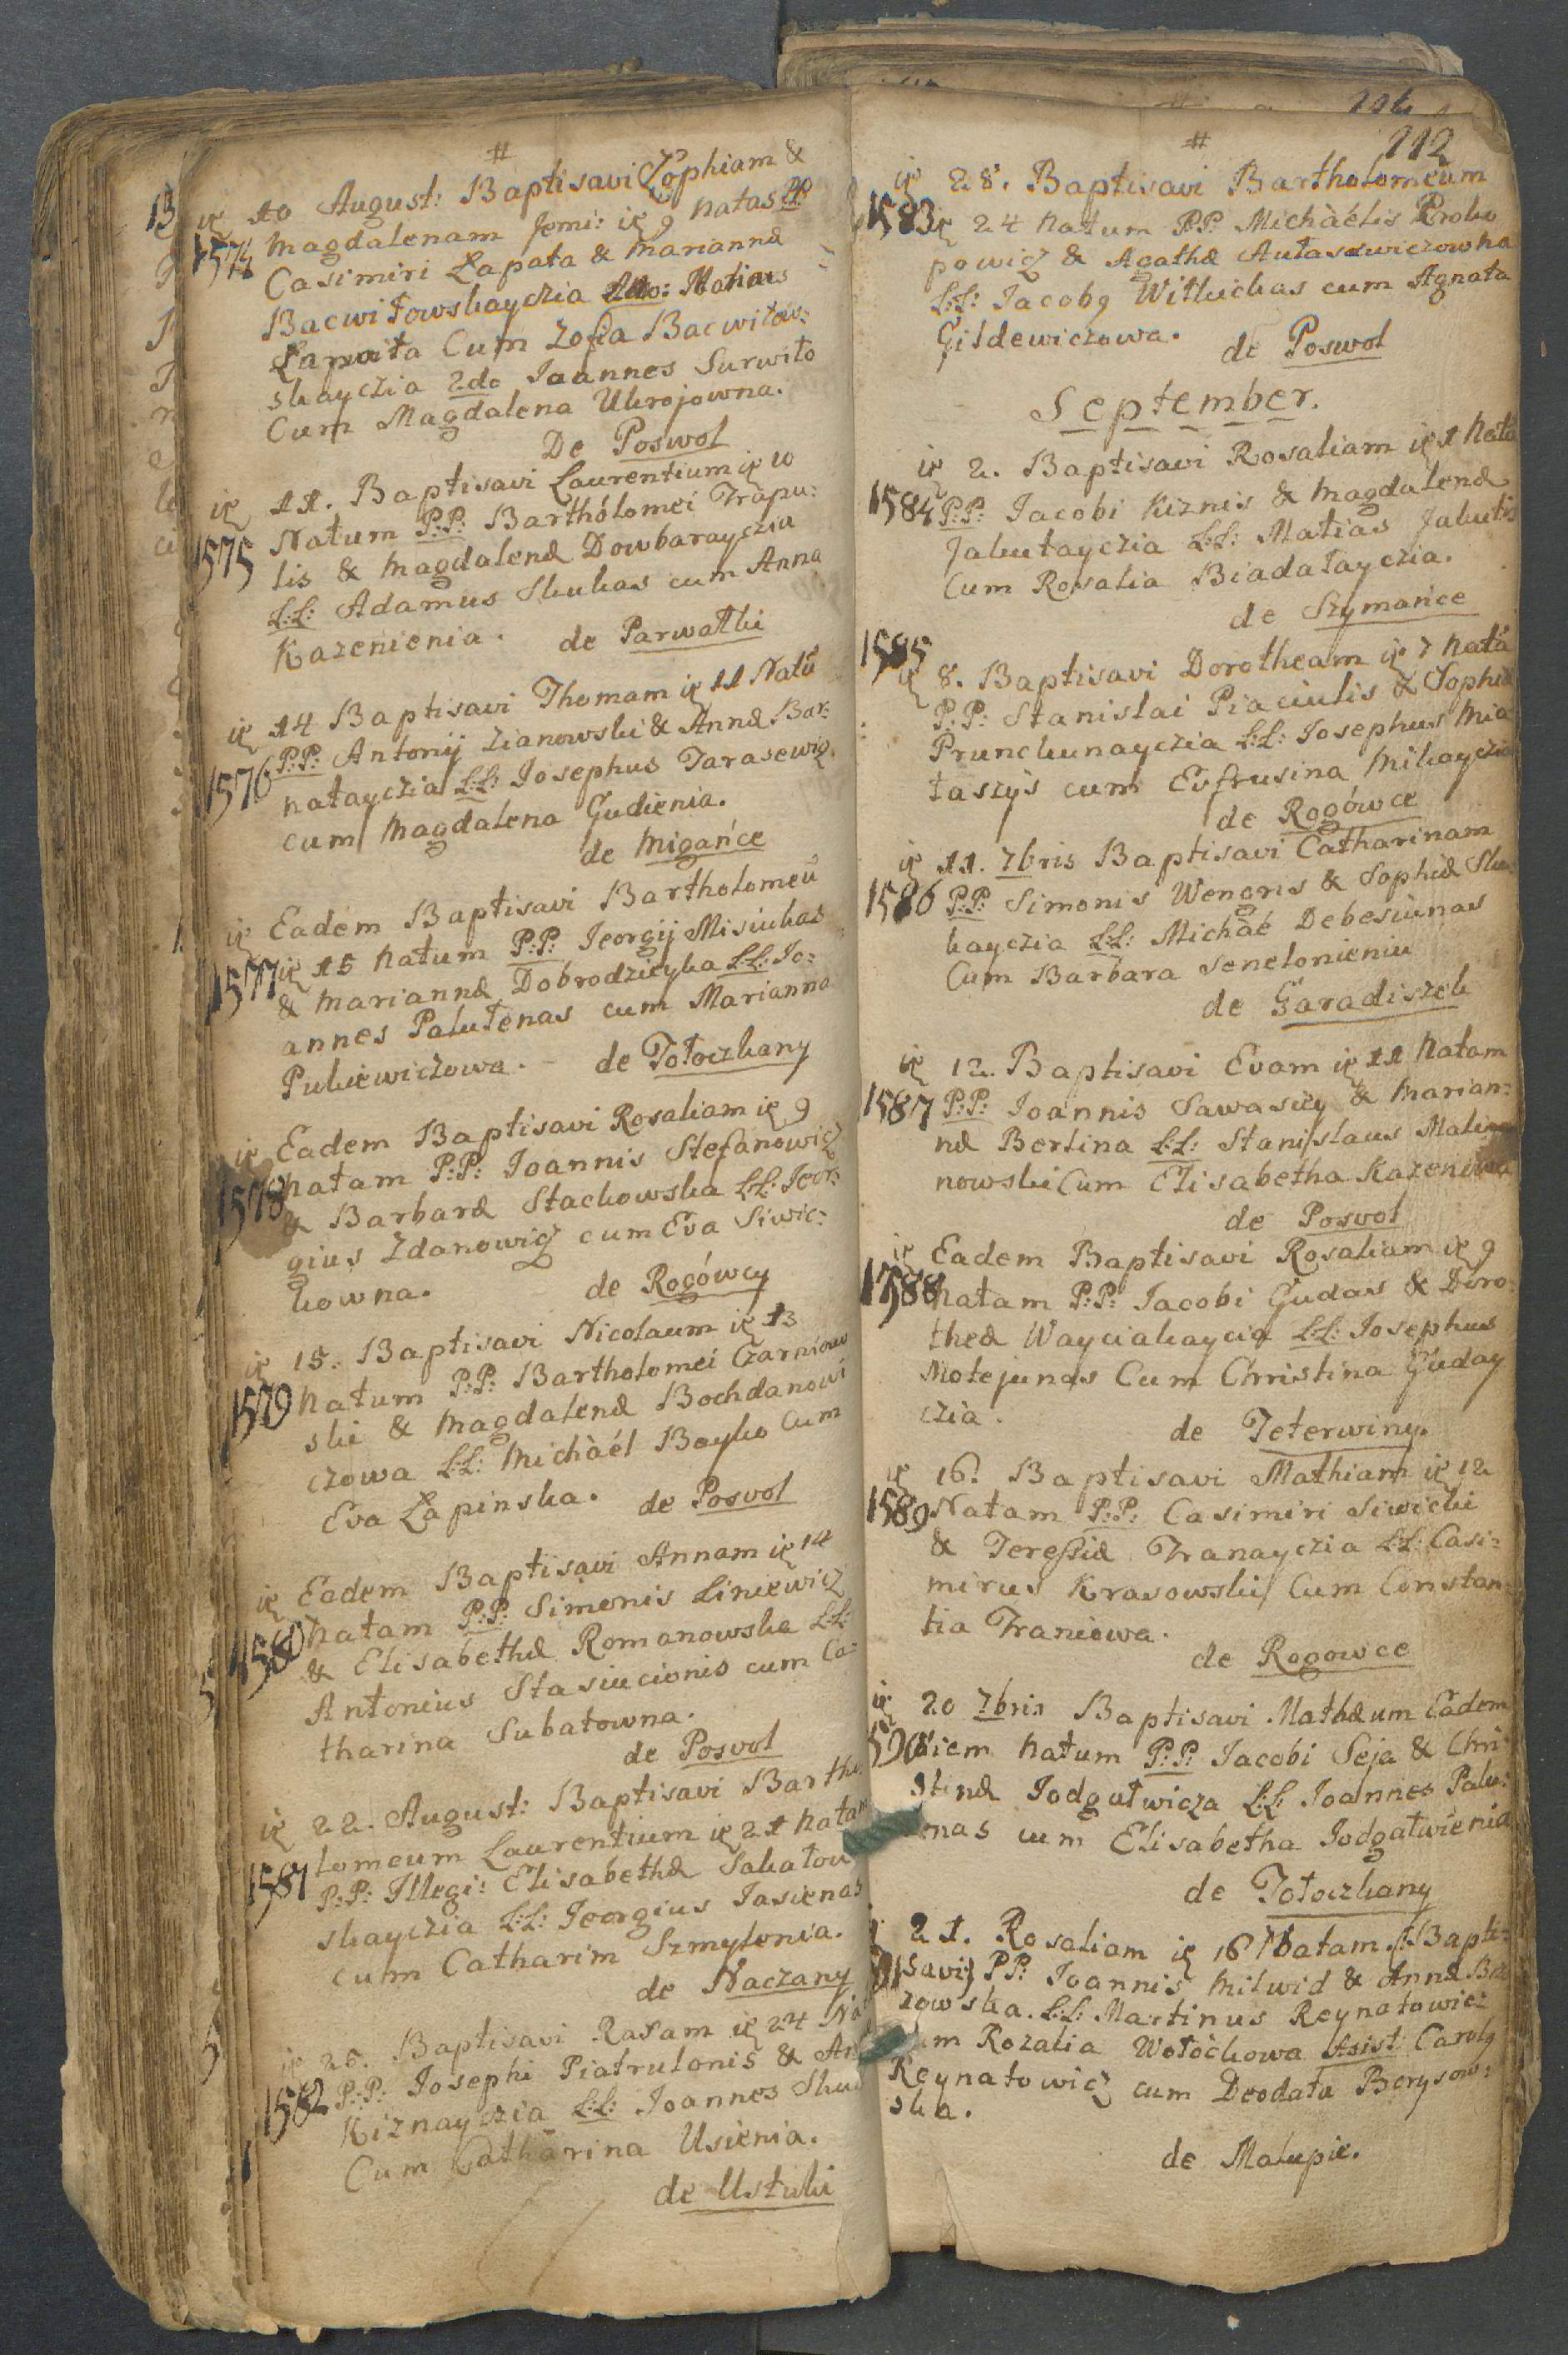 #
ię 10 August: Baptisavi Zophiam &
1574 Magdalenam Jemi: ię 9 natas PP
Casimiri Łapata & Mariannæ
Bacwiłowskayczia Matias
Łapaita Cum Zofia Bacwiłow:
skayczia 2do Joannes Surwiło
Cum Magdalena Ukrojowna.
De Poswol
ię 11. Baptisavi Laurentium ię 10
1575 Natum P:P: Barthólomei Trapu:
lis & Magdalenæ Dowbarayczia
L:L: Adamus Skukas cum Anna
Kazenienia. de Parwałki
ię 14 Baptisavi Thomam ię 11 Natū
1576 P:P: Antonij Zianowski & Annæ Bar:
natayczia L:L: Josephus Tarasewicz
cum Magdalena Gudienia.
de Migańce
ię Eadem Baptisavi Bartholomeū
1577 ię 15 natum P:P: Jeorgij Misiukas
& Mariannæ Dobrodzieyka L:L: Jo:
annes Palutenas cum Marianna
Pukiewiczowa. de Tołoczkany
ię Eadem Baptisavi Rosaliam ię 9
1578 natam P:P: Joannis Stefanowicz
& Barbaræ Stachowska L:L: Jeor:
gius Zdanowicz cum Eva Siwic:
kowna. de Rogówcy
ię 15. Baptisavi Nicolaum ię 13
1579 natum P:P: Bartholomei Czarniow
ski & Magdalenæ Bochdanowi
czowa L:L: Michàél Boyko Cum
Eva Łapinska. de Posvol
ię Eadem Baptisavi Annam ię 14
1580 natam P:P: Simonis Liniewicz
& Elisabethæ Romanowska L:L:
Antonius Stasiucionis cum Ca:
tharina Subatowna.
de Posvol
ię 22. August: Baptisavi Bartho
lomeum Laurentium ię 21 natam
1581 P:P: Illegi: Elisabethæ Sakatow
skayczia L:L: Jeorgius Jasienas
cum Catharim Szmytonia.
de Naczany
ię 26. Baptisavi ię 24 Na
1582 P:P: Josephi Piatrulonis & An
Kiznayczia L:L: Joannes Skuk
Cum Catharina Usienia.
de Ustuki
106
# 112
ię 28. Baptisavi Bartholomeum
1583 ię 24 natum P:P: Michàélis Proko
powicz & Agathæ Autasewiczowna
L:L: Jacobg Witkuckas cum Agnata
Gildewiczowa. de Poswol
September.
ię 2. Baptisavi Rosaliam ię 1 Natā
1584 P:P: Jacobi Kiznis & Magdalenæ
Jakutayczia L:L: Matias Jakutis
Cum Rosalia Biadałayczia.
de Szymańce
1585
ię 8. Baptisavi Dorotheam ię 7 natā
P:P: Stanislai Piaciulis & Sophiæ
Prunckunayczia L:L: Josephus Mia
taszys cum Eufrusina Mikayczia
de Rogówce
ię 11. 7bris Baptisavi Catharinam
1586 P:P: Simonis Wengris & Sophiæ Sku
kayczia L:L: Michàé Debesiunas
Cum Barbara Senelonieniu
de Garadiszek
ię 12. Baptisavi Evam ię 11 Natam
1587 P:P: Joannis Sawasicy & Marian:
næ Bertina L:L: Stanislaus Mali
nowski Cum Elisabetha Kazenowa
de Posvol
ię Eadem Baptisavi Rosaliam ię 9
1588 natam P:P: Jacobi Gudas & Doro:
theæ Wayciakaycia L:L: Josephus
Motejunas Cum Christina Guday
czia. de Teterwiny.
ię 16. Baptisavi Mathiam ię 12
1589 Natam P:P: Casimiri Siwicki
& Teressiæ Tranayczia L:L: Casi:
mirus Krasowski Cum Constan
tia Traniowa.
de Rogowce
ię 20 7bris Baptisavi Mathæum Eadem
590 diem natum P:P: Jacobi Seja & Chri
stinæ Jodgutwicza L:L: Joannes Palu:
nas cum Elisabetha Jodgatwienia
de Tołoczkany
21. Rosaliam ię 16 Natam. Bapti:
savi P:P: Joannis Milwid & Annæ Ba
zowska. L:L: Martinus Reynatowicz
um Rozalia Wołòckowa Asist: Carolg
Reynatowicz cum Deodata Borysow:
ska.
de Malupie.